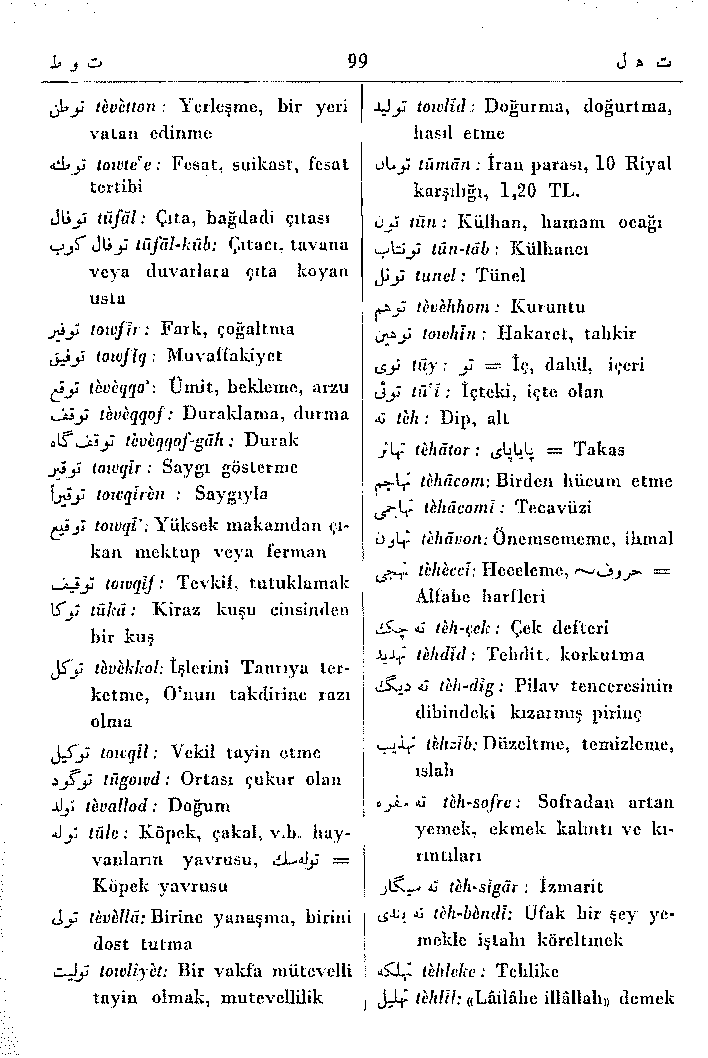 ت و ط 99 ت ه ل
توطن tèvètton : Yerleşme, bir yeri
vatan edinme
توطئه towte'e : Fesat, suikast, fesat
tertibi
توفال tūfāl : Çıta, bağdadi çıtası
توفال کوب tūfāl-kūb: Çıtacı, tavana
veya duvarlara çıta koyan
usta
توفیر towfīr : Fark, çoğaltma
توفیق towfīq : Muvaffakiyet
توقع tèvèqqo' : Ümit, bekleme, arzu
توقف tèvèqqof : Duraklama, durma
توقف گاه tèvèqqof-gāh : Durak
توقیر towqīr : Saygı gösterme
توقیراً towqīrèn : Saygıyla
توقیع towqī' : Yüksek makamdan çı-
kan mektup veya ferman
توقیف towqīf : Tevkif, tutuklamak
توکا tūkā : Kiraz kuşu cinsinden
bir kuş
توکل tèvèkkol: İşlerini Tanrıya ter-
ketme, O'nun takdirine razı
olma
توکیل towqīl : Vekil tayin etme
توگود tūgowd : Ortası çukur olan
تولد tèvallod : Doğum
توله tūle : Köpek, çakal, v.b. hay-
vanların yavrusu, توله سگ =
Köpek yavrusu
تولی tèvèllā: Birine yanaşma, birini
dost tutma
تولیت towlīyèt: Bir vakfa mütevelli
tayin olmak, mutevellilik
تولید towlīd : Doğurma, doğurtma,
hasıl etme
تومان tūmān : İran parası, 10 Riyal
karşılığı, 1,20 TL.
تون tūn : Külhan, hamam ocağı
تون تاب tūn-tāb : Külhancı
تونل tunel : Tünel
توهم tèvèhhom : Kuruntu
توهین towhīn : Hakaret, tahkir
توی tūy : تو = İç, dahil, içeri
توئی tū'ī : İçteki, içte olan
ته tèh : Dip, alt
تهاتر tèhātor : پایاپای = Takas
تهاجم tèhācom: Birden hücum etme
تهاجمی tèhācomī : Tecavüzi
تهاون tèhāvon: Önemsememe, ihmal
تهجی tèhèccī: Heceleme, حروف ~ =
Alfabe harfleri
ته چک tèh-çek : Çek defteri
تهدید tèhdīd : Tehdit, korkutma
ته دیگ tèh-dīg : Pilav tenceresinin
dibindeki kızarmış pirinç
تهذیب tèhzīb: Düzeltme, temizleme,
ıslah
ته سفره tèh-sofre : Sofradan artan
yemek, ekmek kalıntı ve kı-
rıntıları
ته سیگار tèh-sīgār : İzmarit
ته بندی tèh-bèndī: Ufak bir şey ye-
mekle iştahı köreltmek
تهلکه tèhleke : Tehlike
تهلیل tèhlīl: «Lâilâhe illâllah» demek